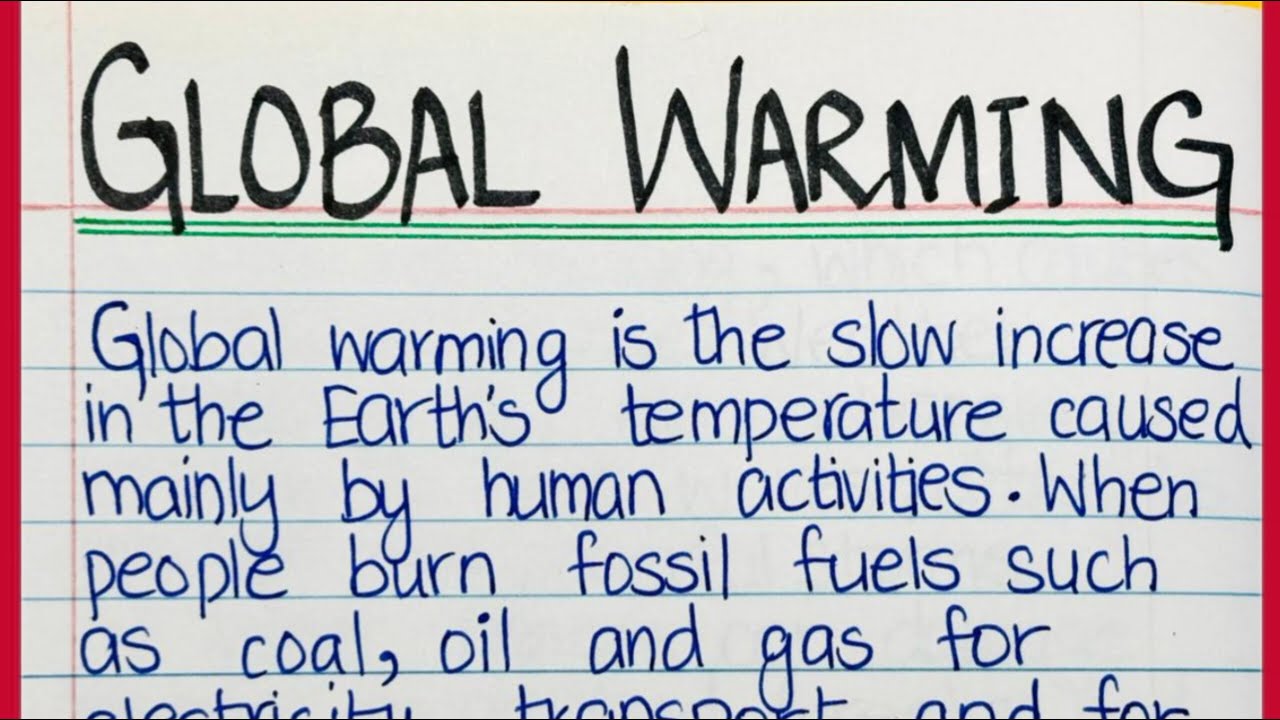 GLOBAL WARMING
Global warming is the slow increase
in the Earth's temperature caused
mainly by human activities. When
people burn fossil fuels such
as coal, oil and gas for
electricity, transport and for